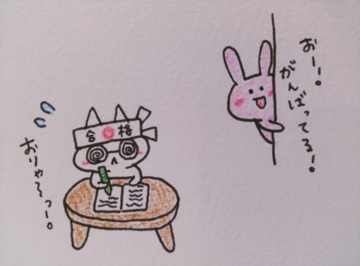 おー！。
がんばってる！。
合格
おりゃろっー。